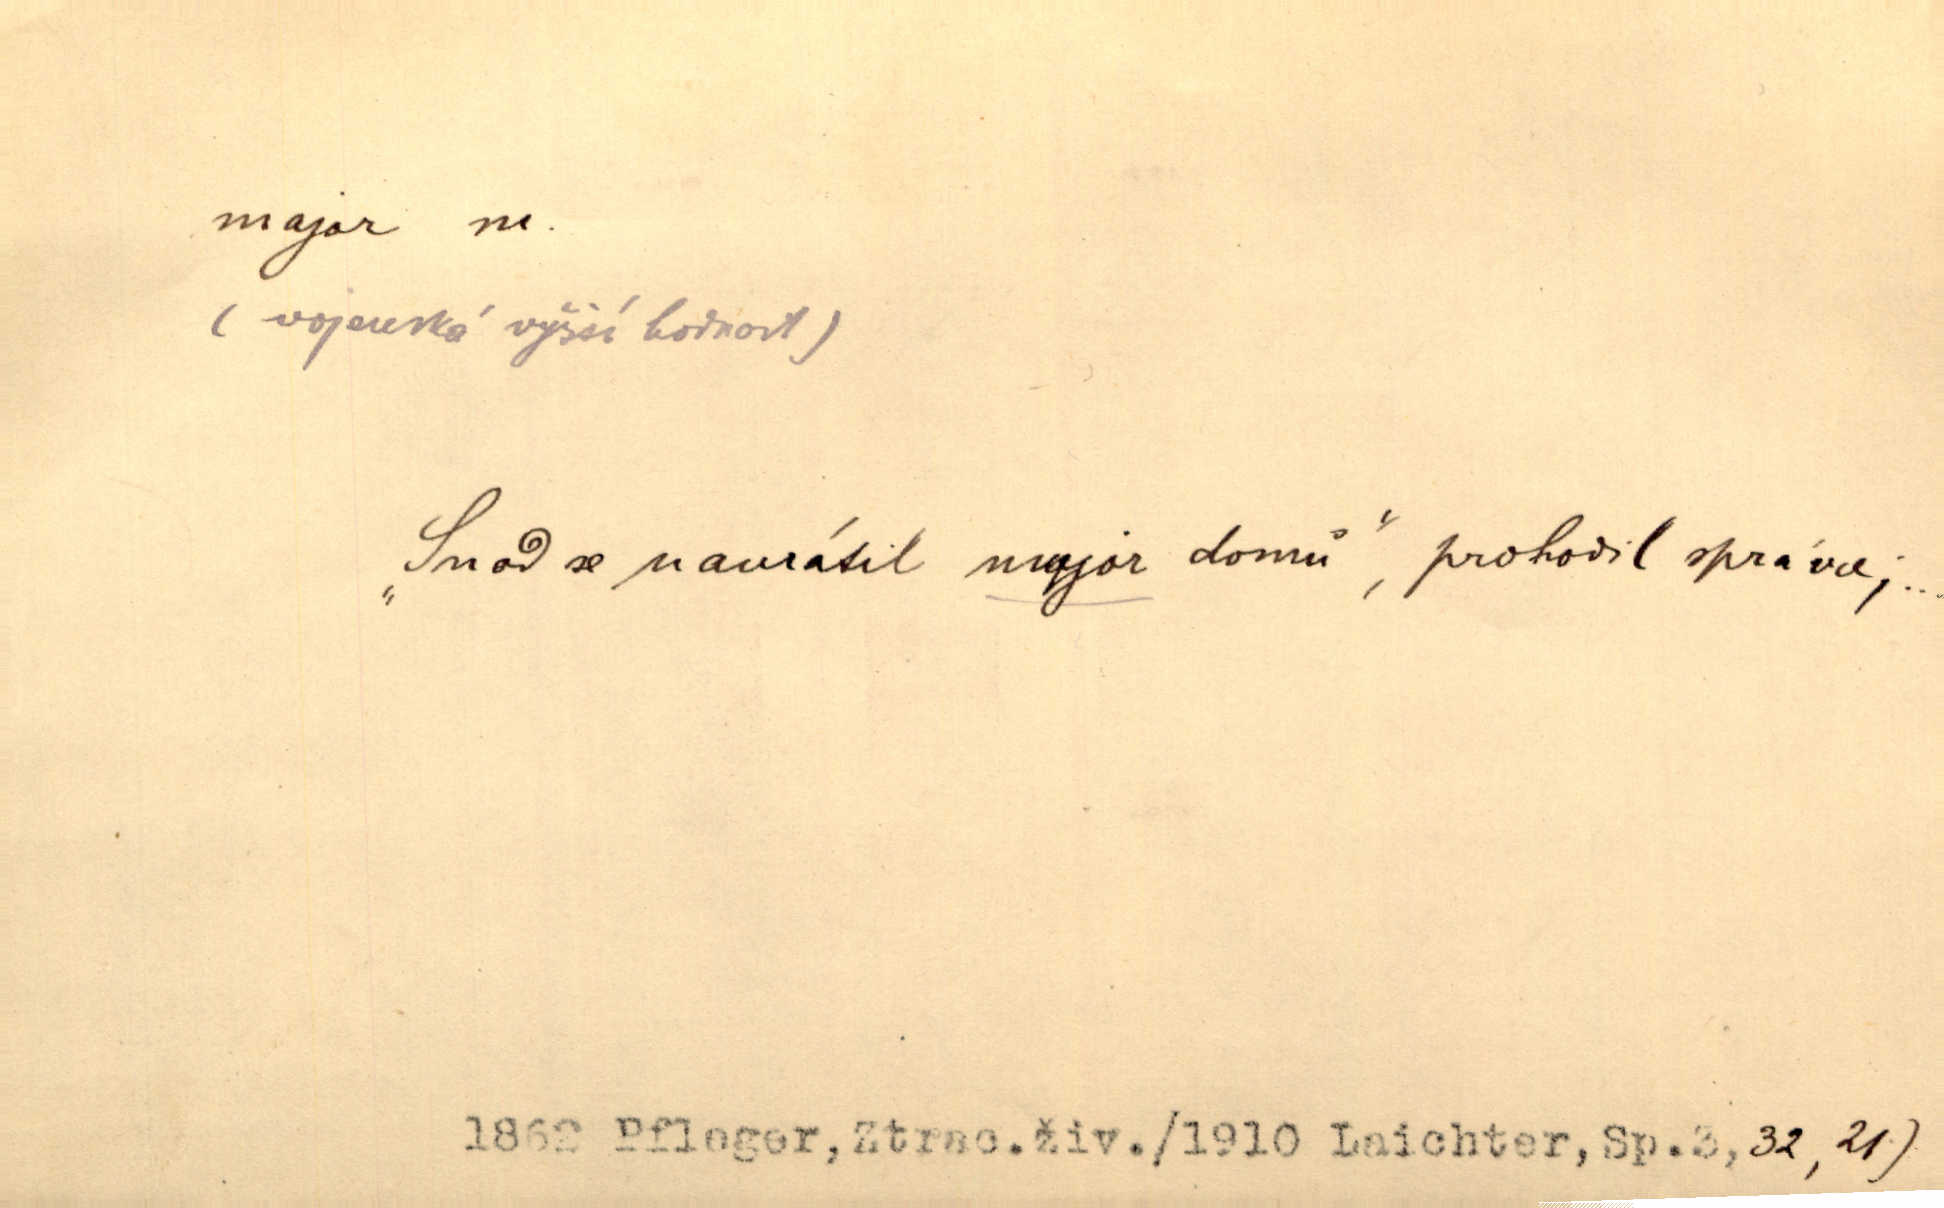 major m.
(vojenská vyšší hodnost)
„Snad se navrátil major domů“, prohodil správce; ...
1862 Pfleger, Ztrac.živ./1910 Laichter, Sp.3, 32, 21)